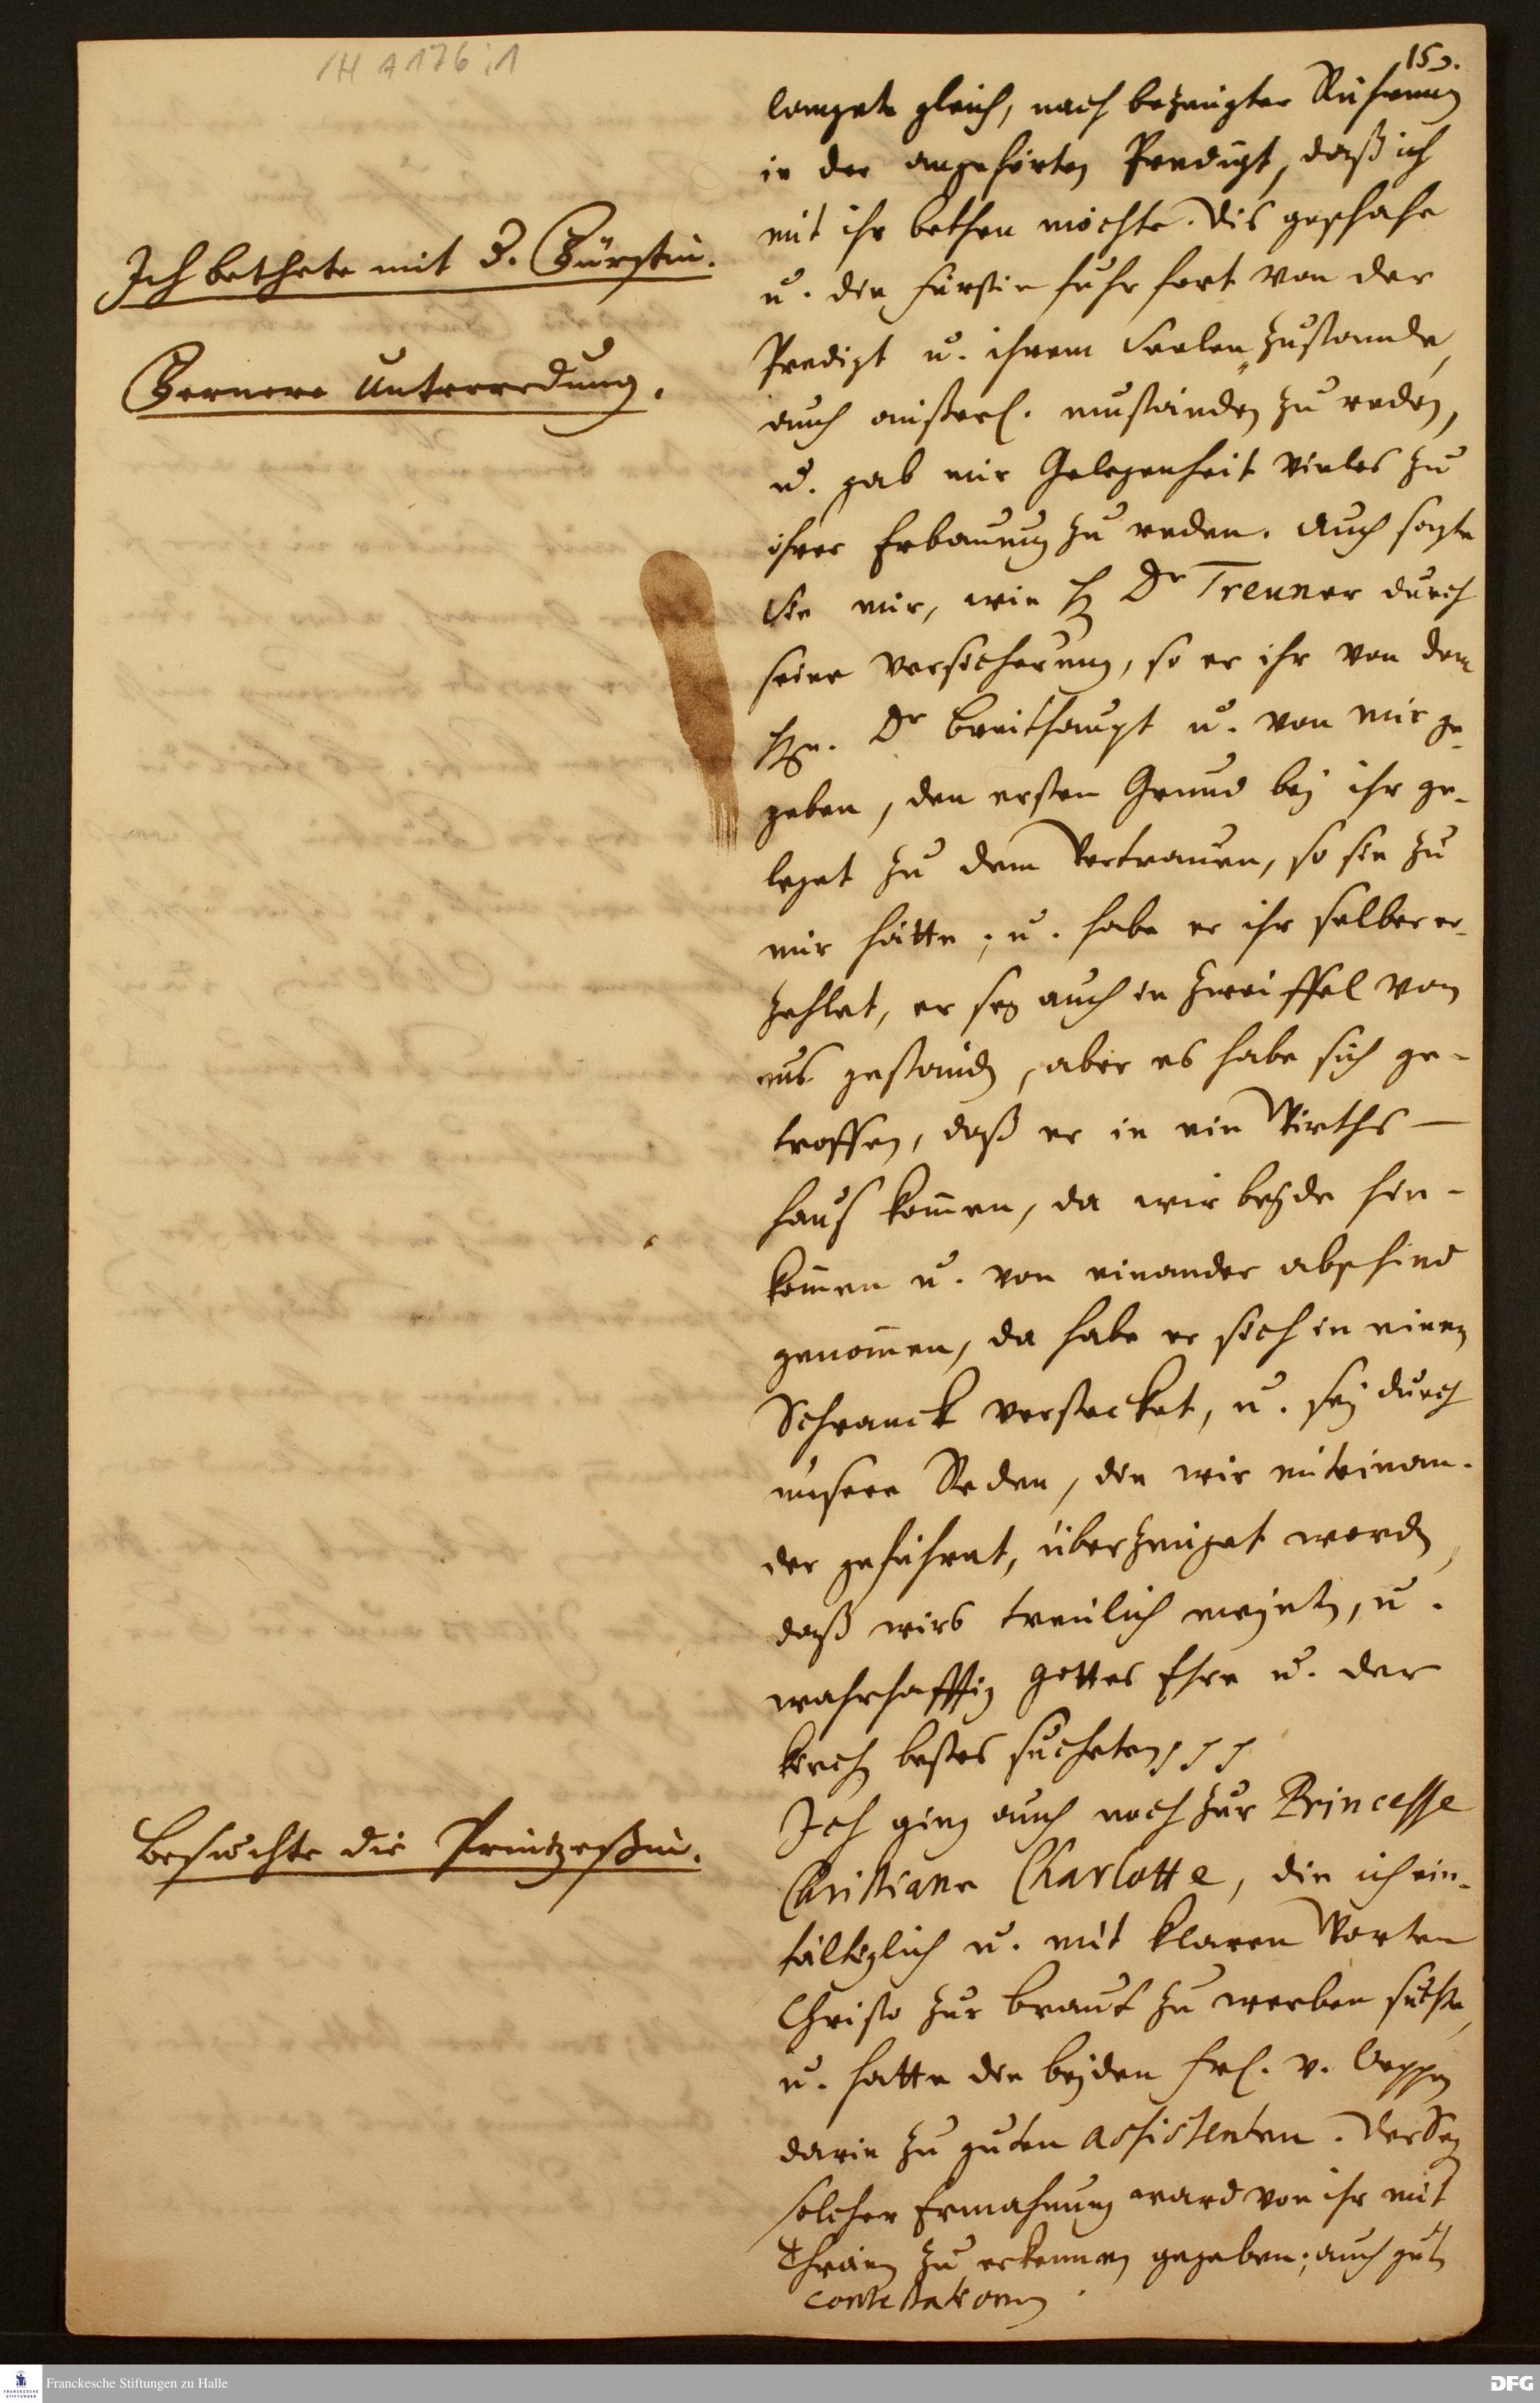 /H A 176 : 1
15
langete gleich, nach bezeugter Rührung
in der angehörten Predigt, daß ich
mit ihr bethen möchte. Dis geschahe
Ich bethete mit d. Fürstin.
u. die Fürstin fuhr fort von der
Predigt u. ihrem Seelen-Zustande,
Fernere Unterredung.
auch äußerl. umständen zu reden,
u. gab mir Gelegenheit vieles zu
ihrer Erbauung zu reden. Auch sagte
Sie mir, wie H Dr Treuner durch
seine Versicherung, so er ihr von dem
Hrn. Dr Breithaupt u. von mir ge-
geben, den ersten Grund bey ihr ge-
leget zu dem Vertrauen, so sie zu
mir hätte; u. habe er ihr selber er-
zehlet, er sey auch in Zweiffel von
uns gestanden, aber es habe sich ge-
troffen, daß er in ein Wirths-
hauß kommen, da wir beyde hin-
kommen u. von einander abschied
genommen, da habe er sich in einen
Schranck verstecket, u. sey durch
unsere Reden, die wir miteinan-
der geführet, überzeuget worden,
daß wirs treulich meynten, u.
wahrhafftig Gottes Ehre u. der
Kirchen bestes sucheten
Ich ging auch noch zur Princesse
Besuchte die Printzeßin.
Christiane Charlotte, die ich ein-
fältiglich u. mit klaren Worten
Christo zur Braut zu werben suchte,
u. hatte die beyden Frl. v.
darin zu guten Assistenten. Der Seg
solcher Ermahnung ward von ihr mit
Thränen zu erkennen gegeben; auch gute
contestationen
Franckesche Stiftungen zu Halle
FRANCKESCHE STIFTUNGEN
DFG